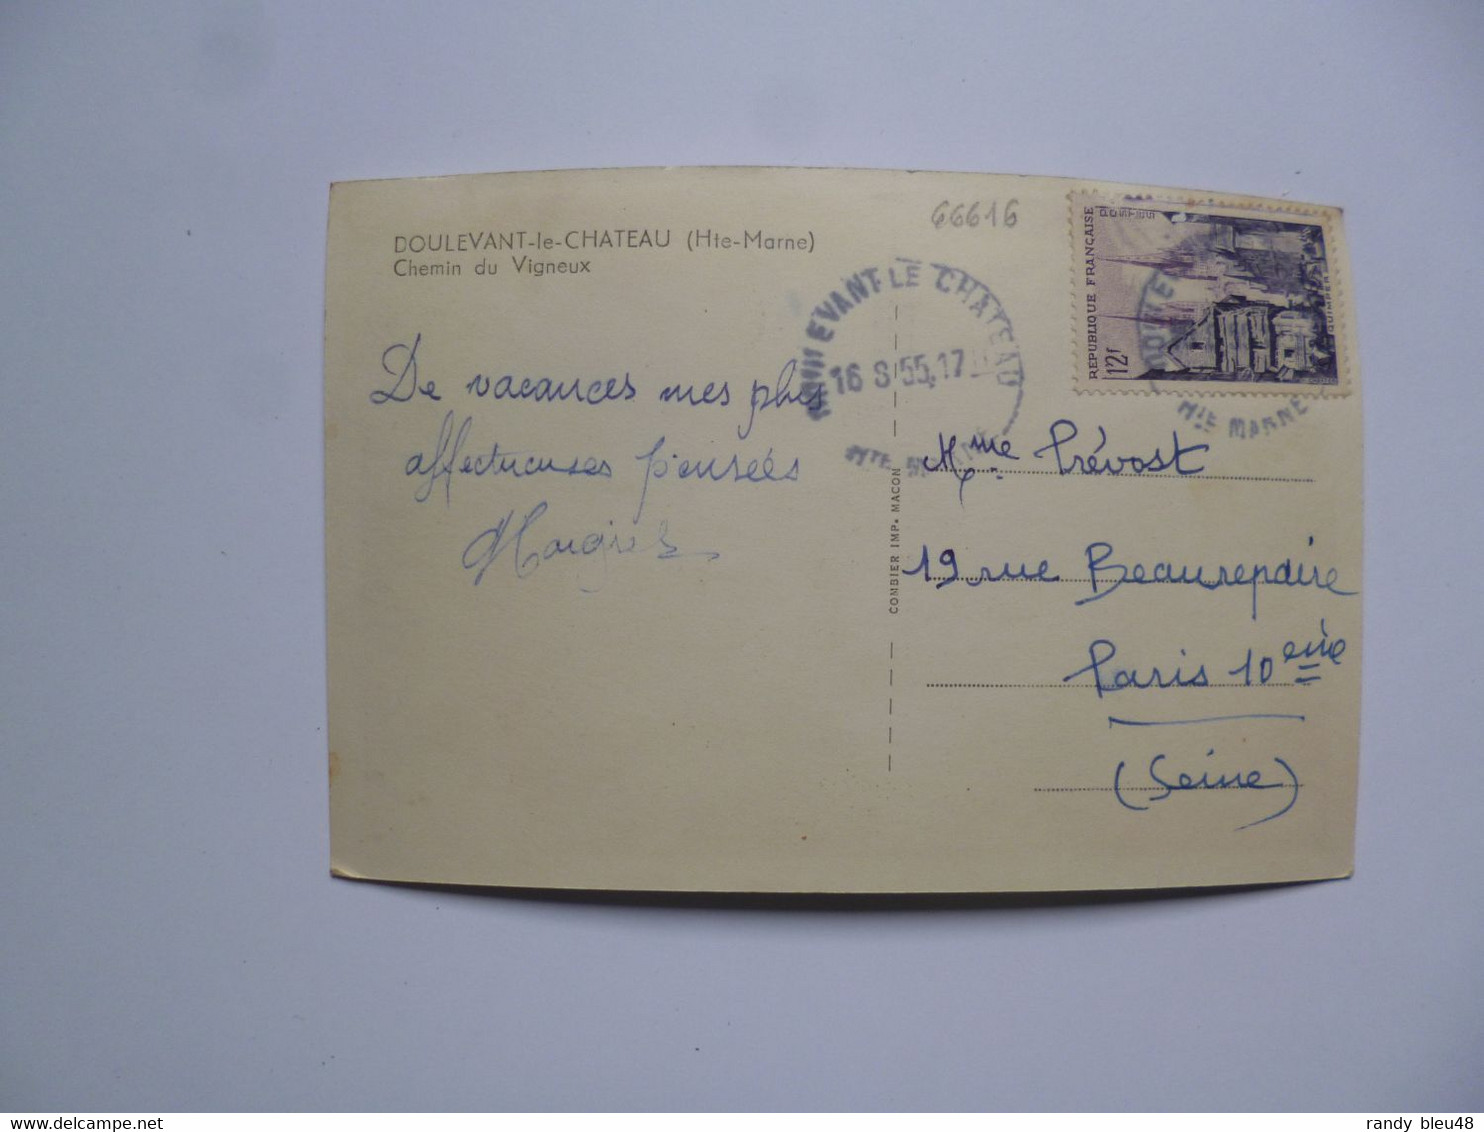 66616
DOULEVANT-le-CHATEAU (Hte-Marne)
Chemin du Vigneux
EVANT-LE CHATEAU
16 8 55.17
HTE MARNE
REPUBLIQUE FRANÇAISE
POSTES
12f
QUIMPER
HTE MARNE
De vacances mes plus
affectueuses pensées
COMBIER IMP. MACON
Mme Prévost
19 rue Beaurepaire
Paris 10ème
(Seine)
randy bleu48